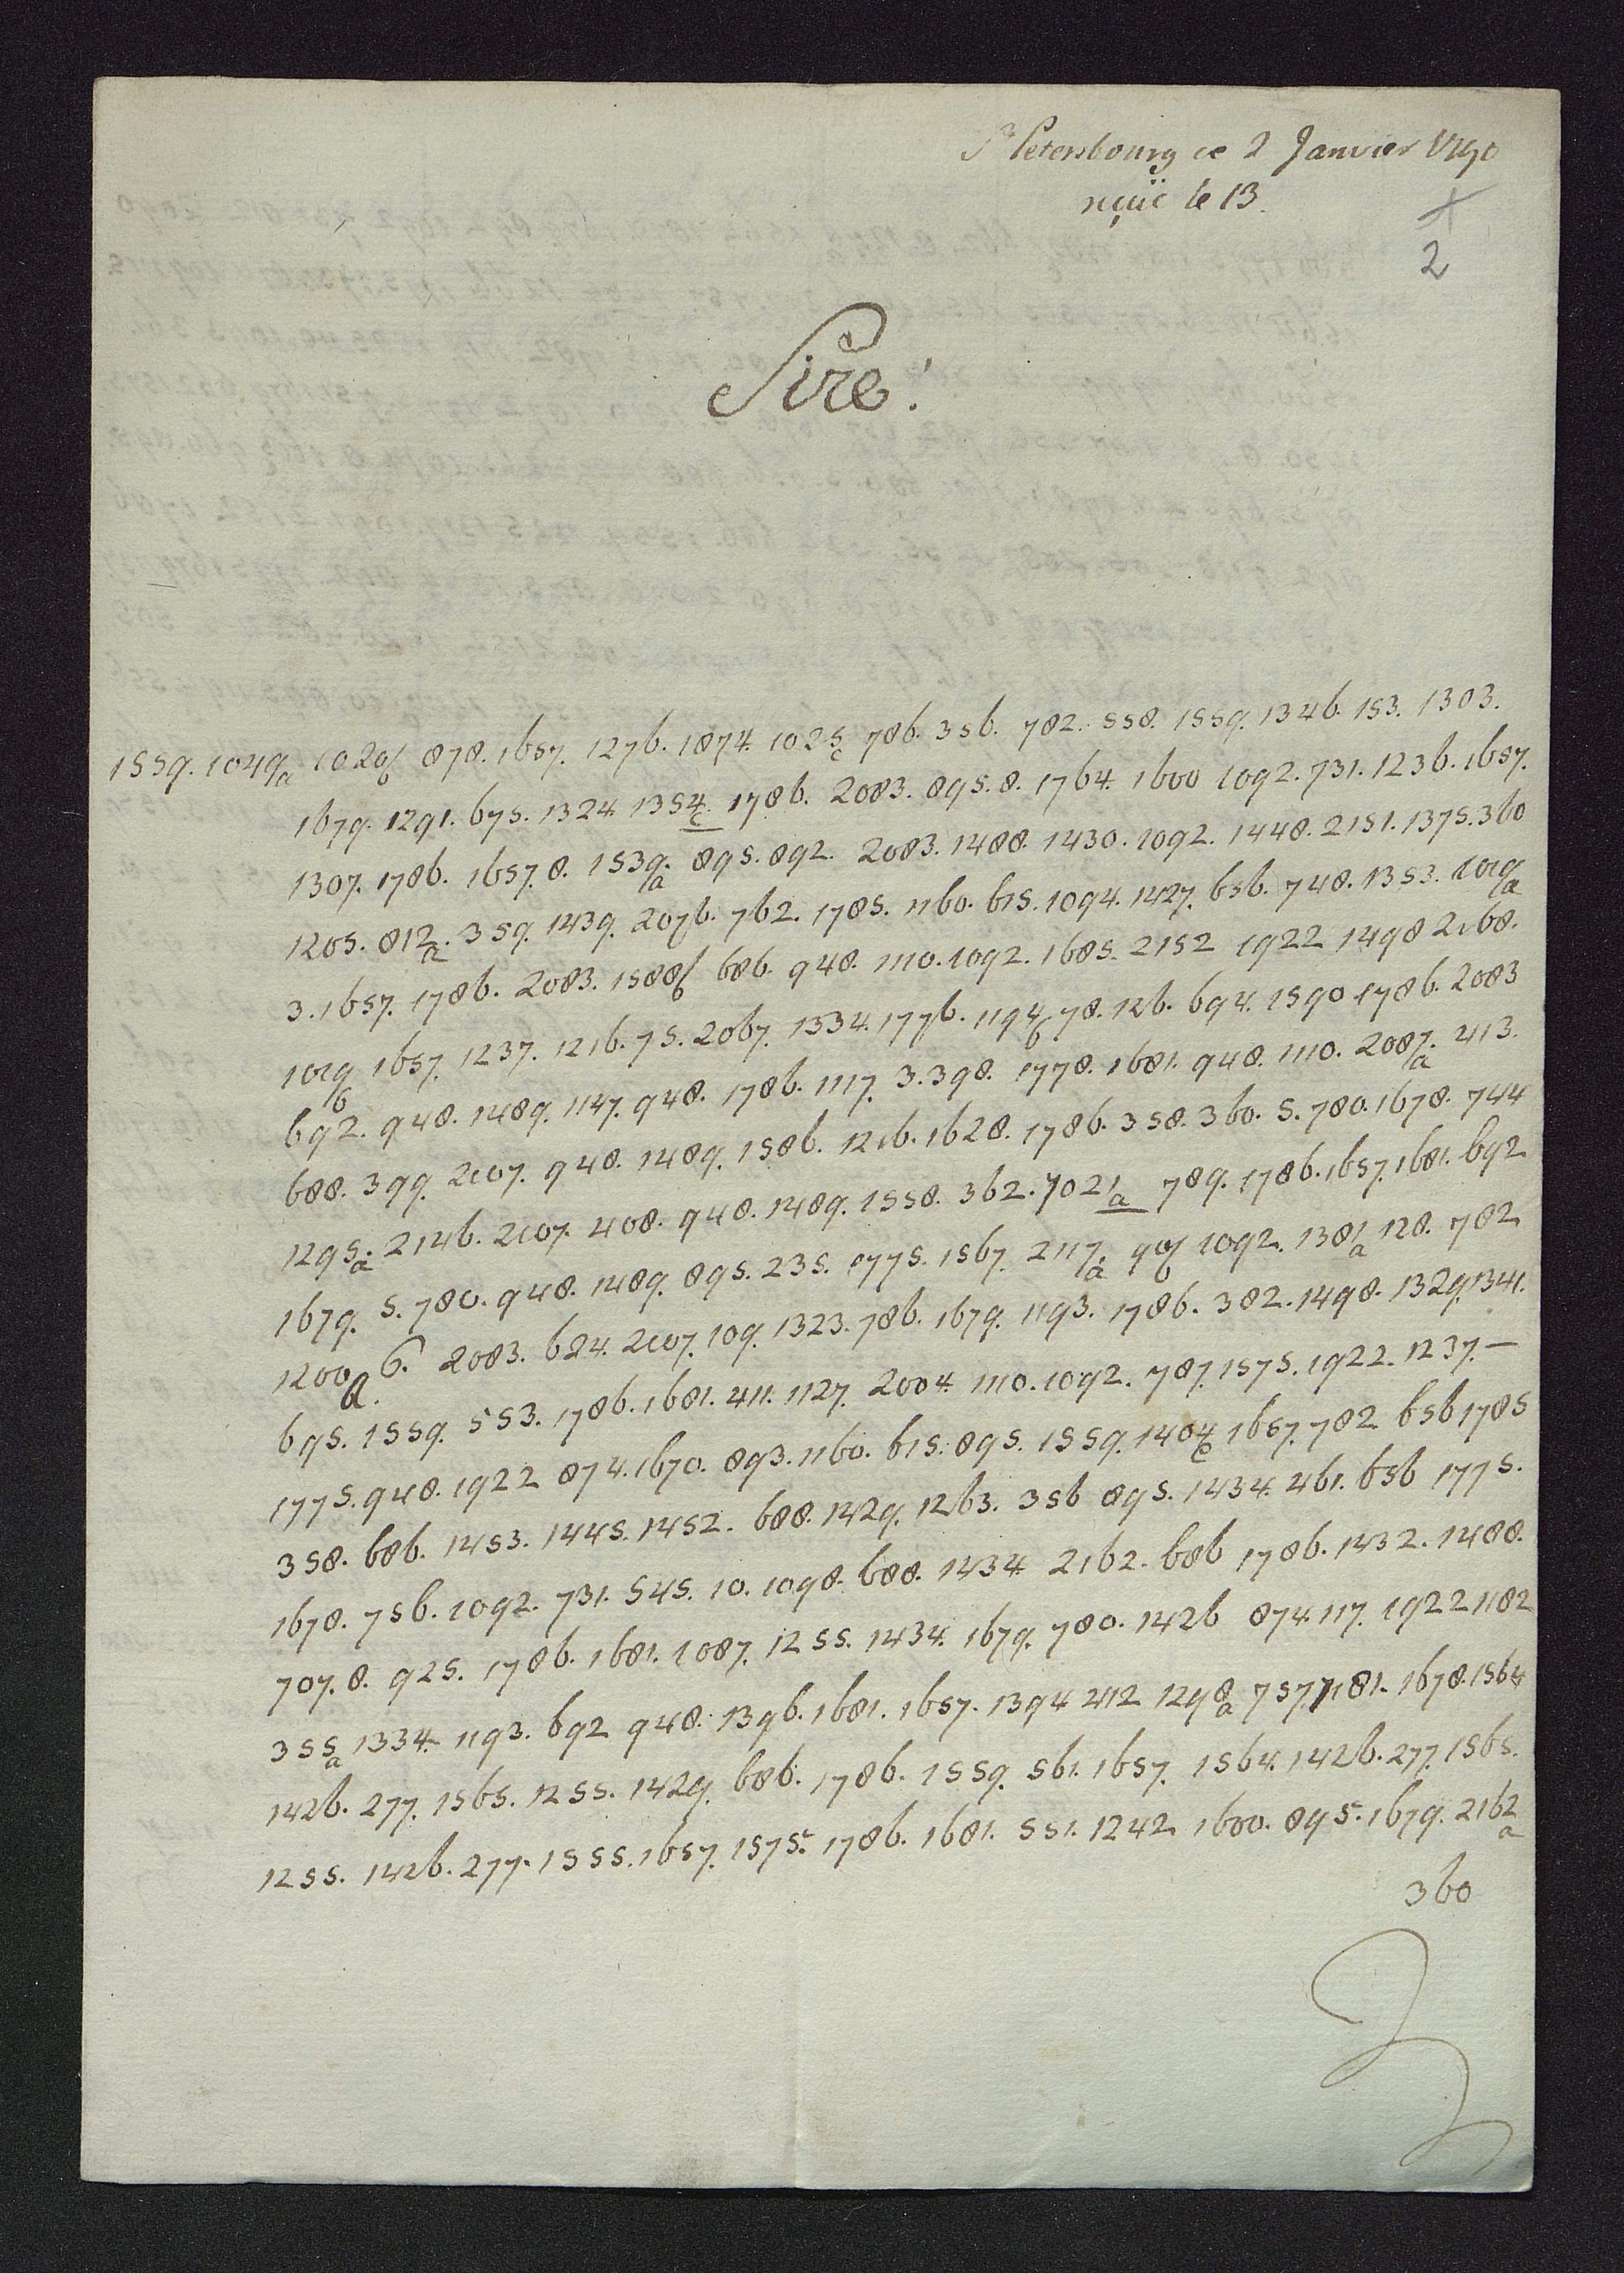 St Petersbourg ce 2 Janvier 1790
reçüe le 13.
2
Sire!
1559. 1049a 1020b 878. 1657. 1276. 1874. 1025c 786. 356. 782. 558. 1559. 1346. 153. 1303.
1679. 1291. 675. 1324. 1354c. 1786. 2083. 895. 8. 1764. 1600 1092. 731. 1236. 1657.
1307. 1786. 1657. 8. 1539a. 895. 892. 2083. 1488. 1430. 1092. 1448. 2151. 1375. 360
1205. 812a. 359. 1439. 2076. 762. 1785. 1160. 615. 1094. 1427. 656. 748. 1353. 1019a
3. 1657. 1786. 2083. 1588b 686. 948. 1110. 1092. 1685. 2152 1922 1498 2168.
1019b 1657. 1237. 1216. 75. 2067. 1334. 1776. 1194b 78. 126. 694. 1590 1786. 2083
692. 948. 1489. 1147. 948. 1786. 1117. 3. 398. 1778. 1681. 948. 1110. 2087a. 413.
688. 399. 2107. 948. 1489. 1586. 1216. 1628. 1786. 358. 360. 5. 780. 1678. 744
1295a. 2146. 2107. 408. 948. 1489. 1558. 362. 7021a 789. 1786. 1657. 1681. 692
1679. 5. 780. 948. 1489. 895. 235. 1775. 1567. 2117a. 90b 1092. 1381a 128. 782
1200a. 6. 2083. 624. 2107. 109. 1323. 786. 1679. 1193. 1786. 382. 1498. 1329. 1341.
695. 1559. 553. 1786. 1681. 411. 1127. 2004. 1110. 1092. 787. 1575. 1922. 1237. –
1775. 948. 1922 874. 1670. 893. 1160. 615. 895. 1559. 1404c 1657. 782 656 1785
358. 686. 1453. 1445. 1452. 688. 1429. 1263. 356 895. 1434. 461. 656 1775.
1678. 756. 1092. 731. 545. 10. 1098. 688. 1434. 2162. 686 1786. 1432. 1488.
707. 8. 925. 1786. 1681. 1087. 1255. 1434. 1679. 780. 1426 874. 117. 1922 1182
355a 1334. 1193. 692 948. 1396. 1681. 1657. 1394 412 1298a 757. 1181. 1678. 1564
1426. 277. 1565. 1255. 1429. 686. 1786. 1559. 561. 1657. 1564. 1426. 277. 1565.
1255. 1426. 277. 1555. 1657. 1575. 1786. 1681. 551. 1242 1680. 895. 1679. 2162a
360